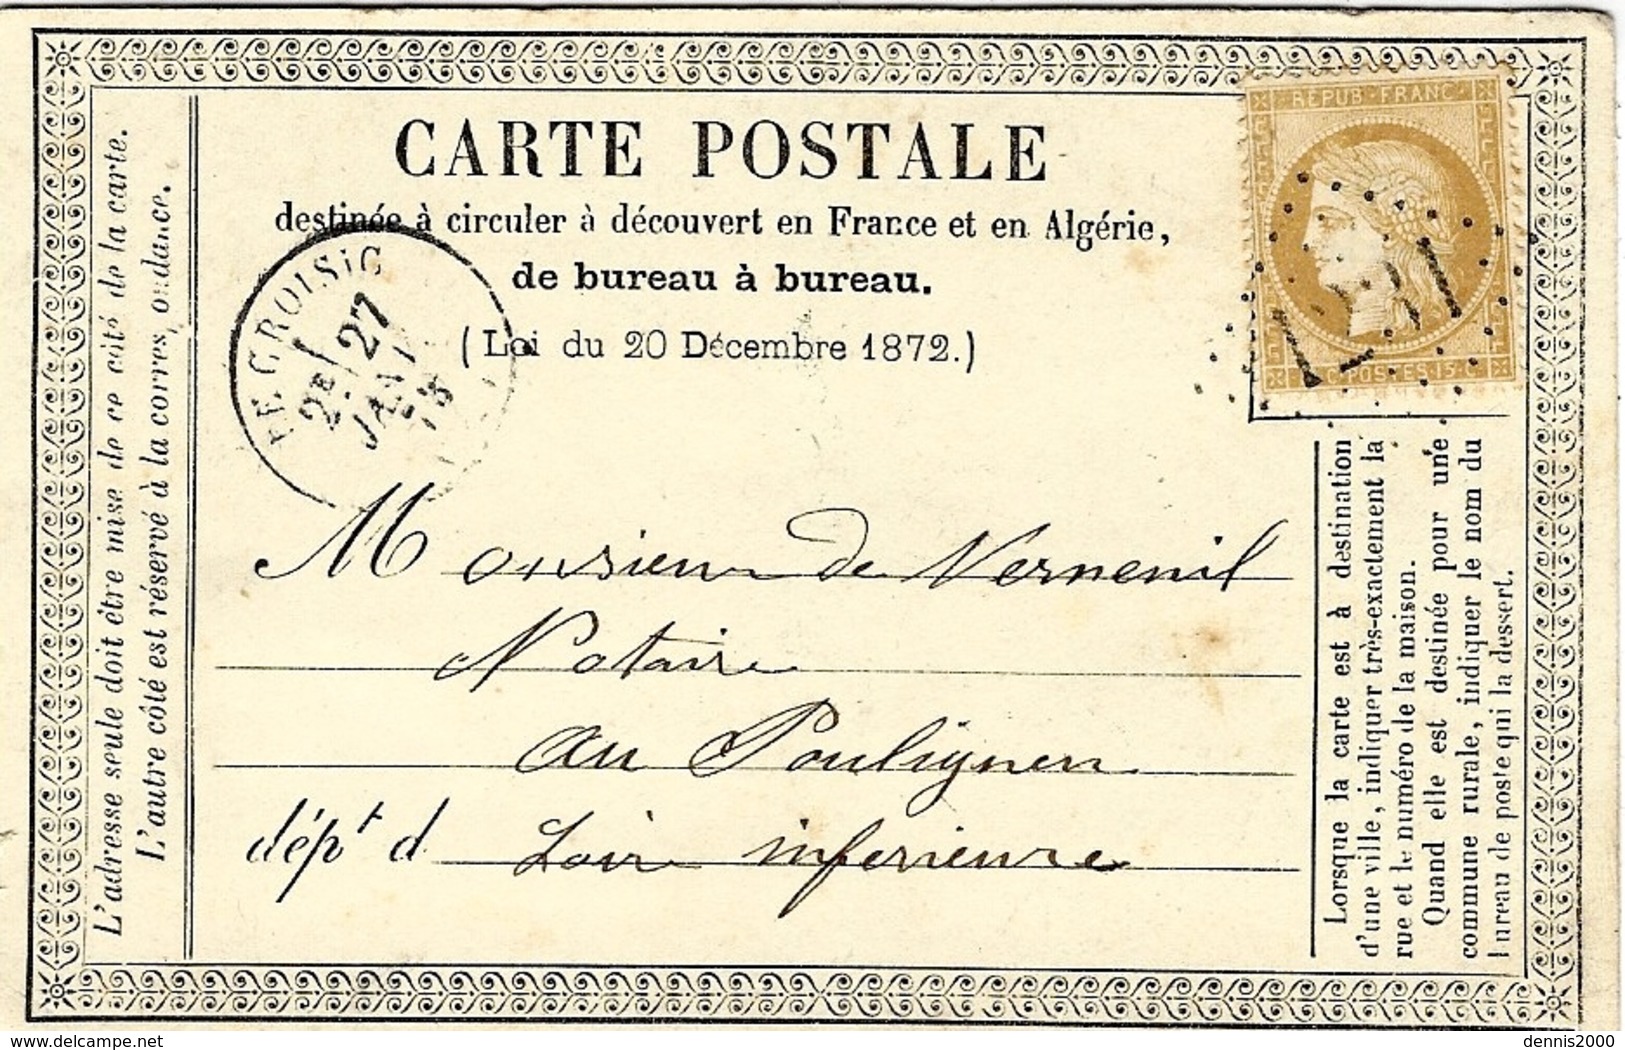 CARTE POSTALE
destinée à circuler à découvert en France et en Algérie,
de bureau à bureau.
(Loi du 20 Décembre 1872.)
REPUB·FRANC
C·POSTES·15·C
LE CROISIC
2E
27
JANV
Monsieur de Verneuil
Notaire
au Pouliguen
dépt d Loire inferieure
L'adresse seule doit être mise de ce côté de la carte.
L'autre côté est réservé à la correspondance.
Lorsque la carte est à destination
d'une ville, indiquer très-exactement la
rue et le numéro de la maison.
Quand elle est destinée pour une
commune rurale, indiquer le nom du
bureau de poste qui la dessert.
www.delcampe.net
dennis2000